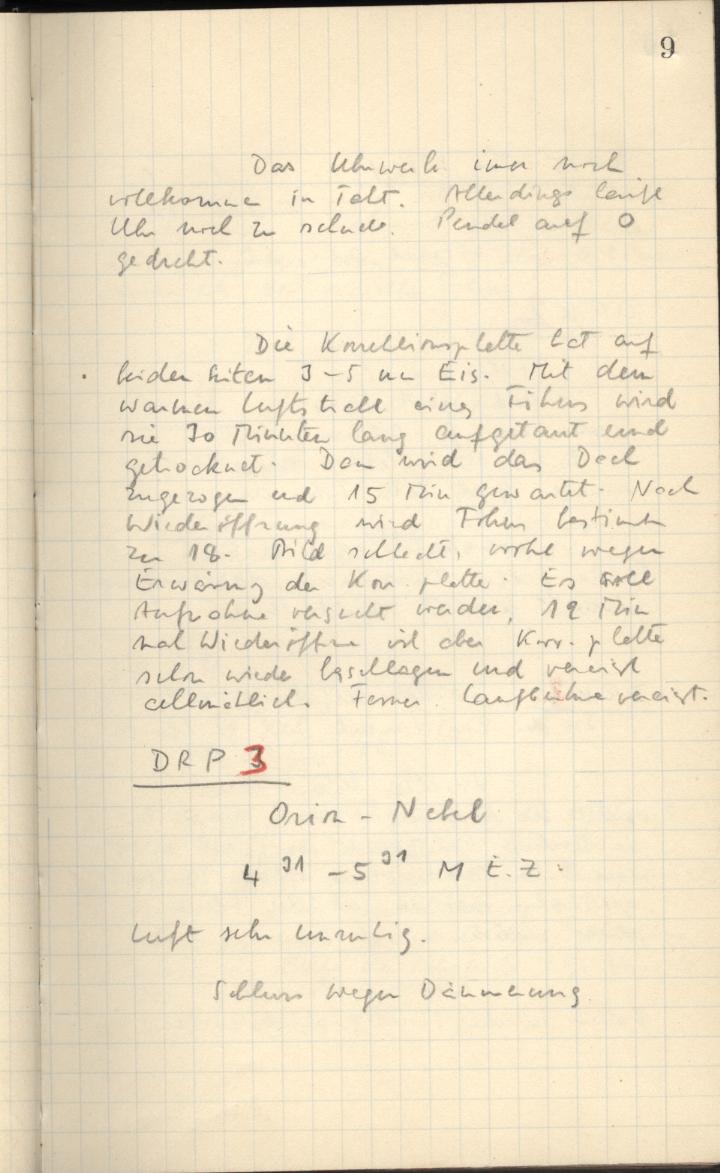 9
Das Uhrwerk immer noch
vollkommen in Takt. Allerdings läuft
Uhr noch zu schnell. Pendel auf 0
gedreht.
Die Korrektionsplatte hat auf
beiden Seiten 3-5 mm Eis. Mit dem
warmen Luftstrahl eines Föhns wird
sie 30 Minuten lang aufgetaut und
getrocknet. Dann wird das Dach
zugezogen und 15 Min gewartet. Nach
Wiederöffnung wird Fokus bestimmt
zu 18. Bild schlecht, wohl wegen
Erwärmung der Korr. platte. Es soll
Aufnahme versucht werden, 12 Min
nach Wiederöffnen ist aber Korr. platte
schon wieder beschlagen und vereist
allmählich. Ferner Laufbühne vereist.
DRP 3
Orion-Nebel
4 31 - 5 31 M.E.Z.
Luft sehr unruhig.
Schluss wegen Dämmerung